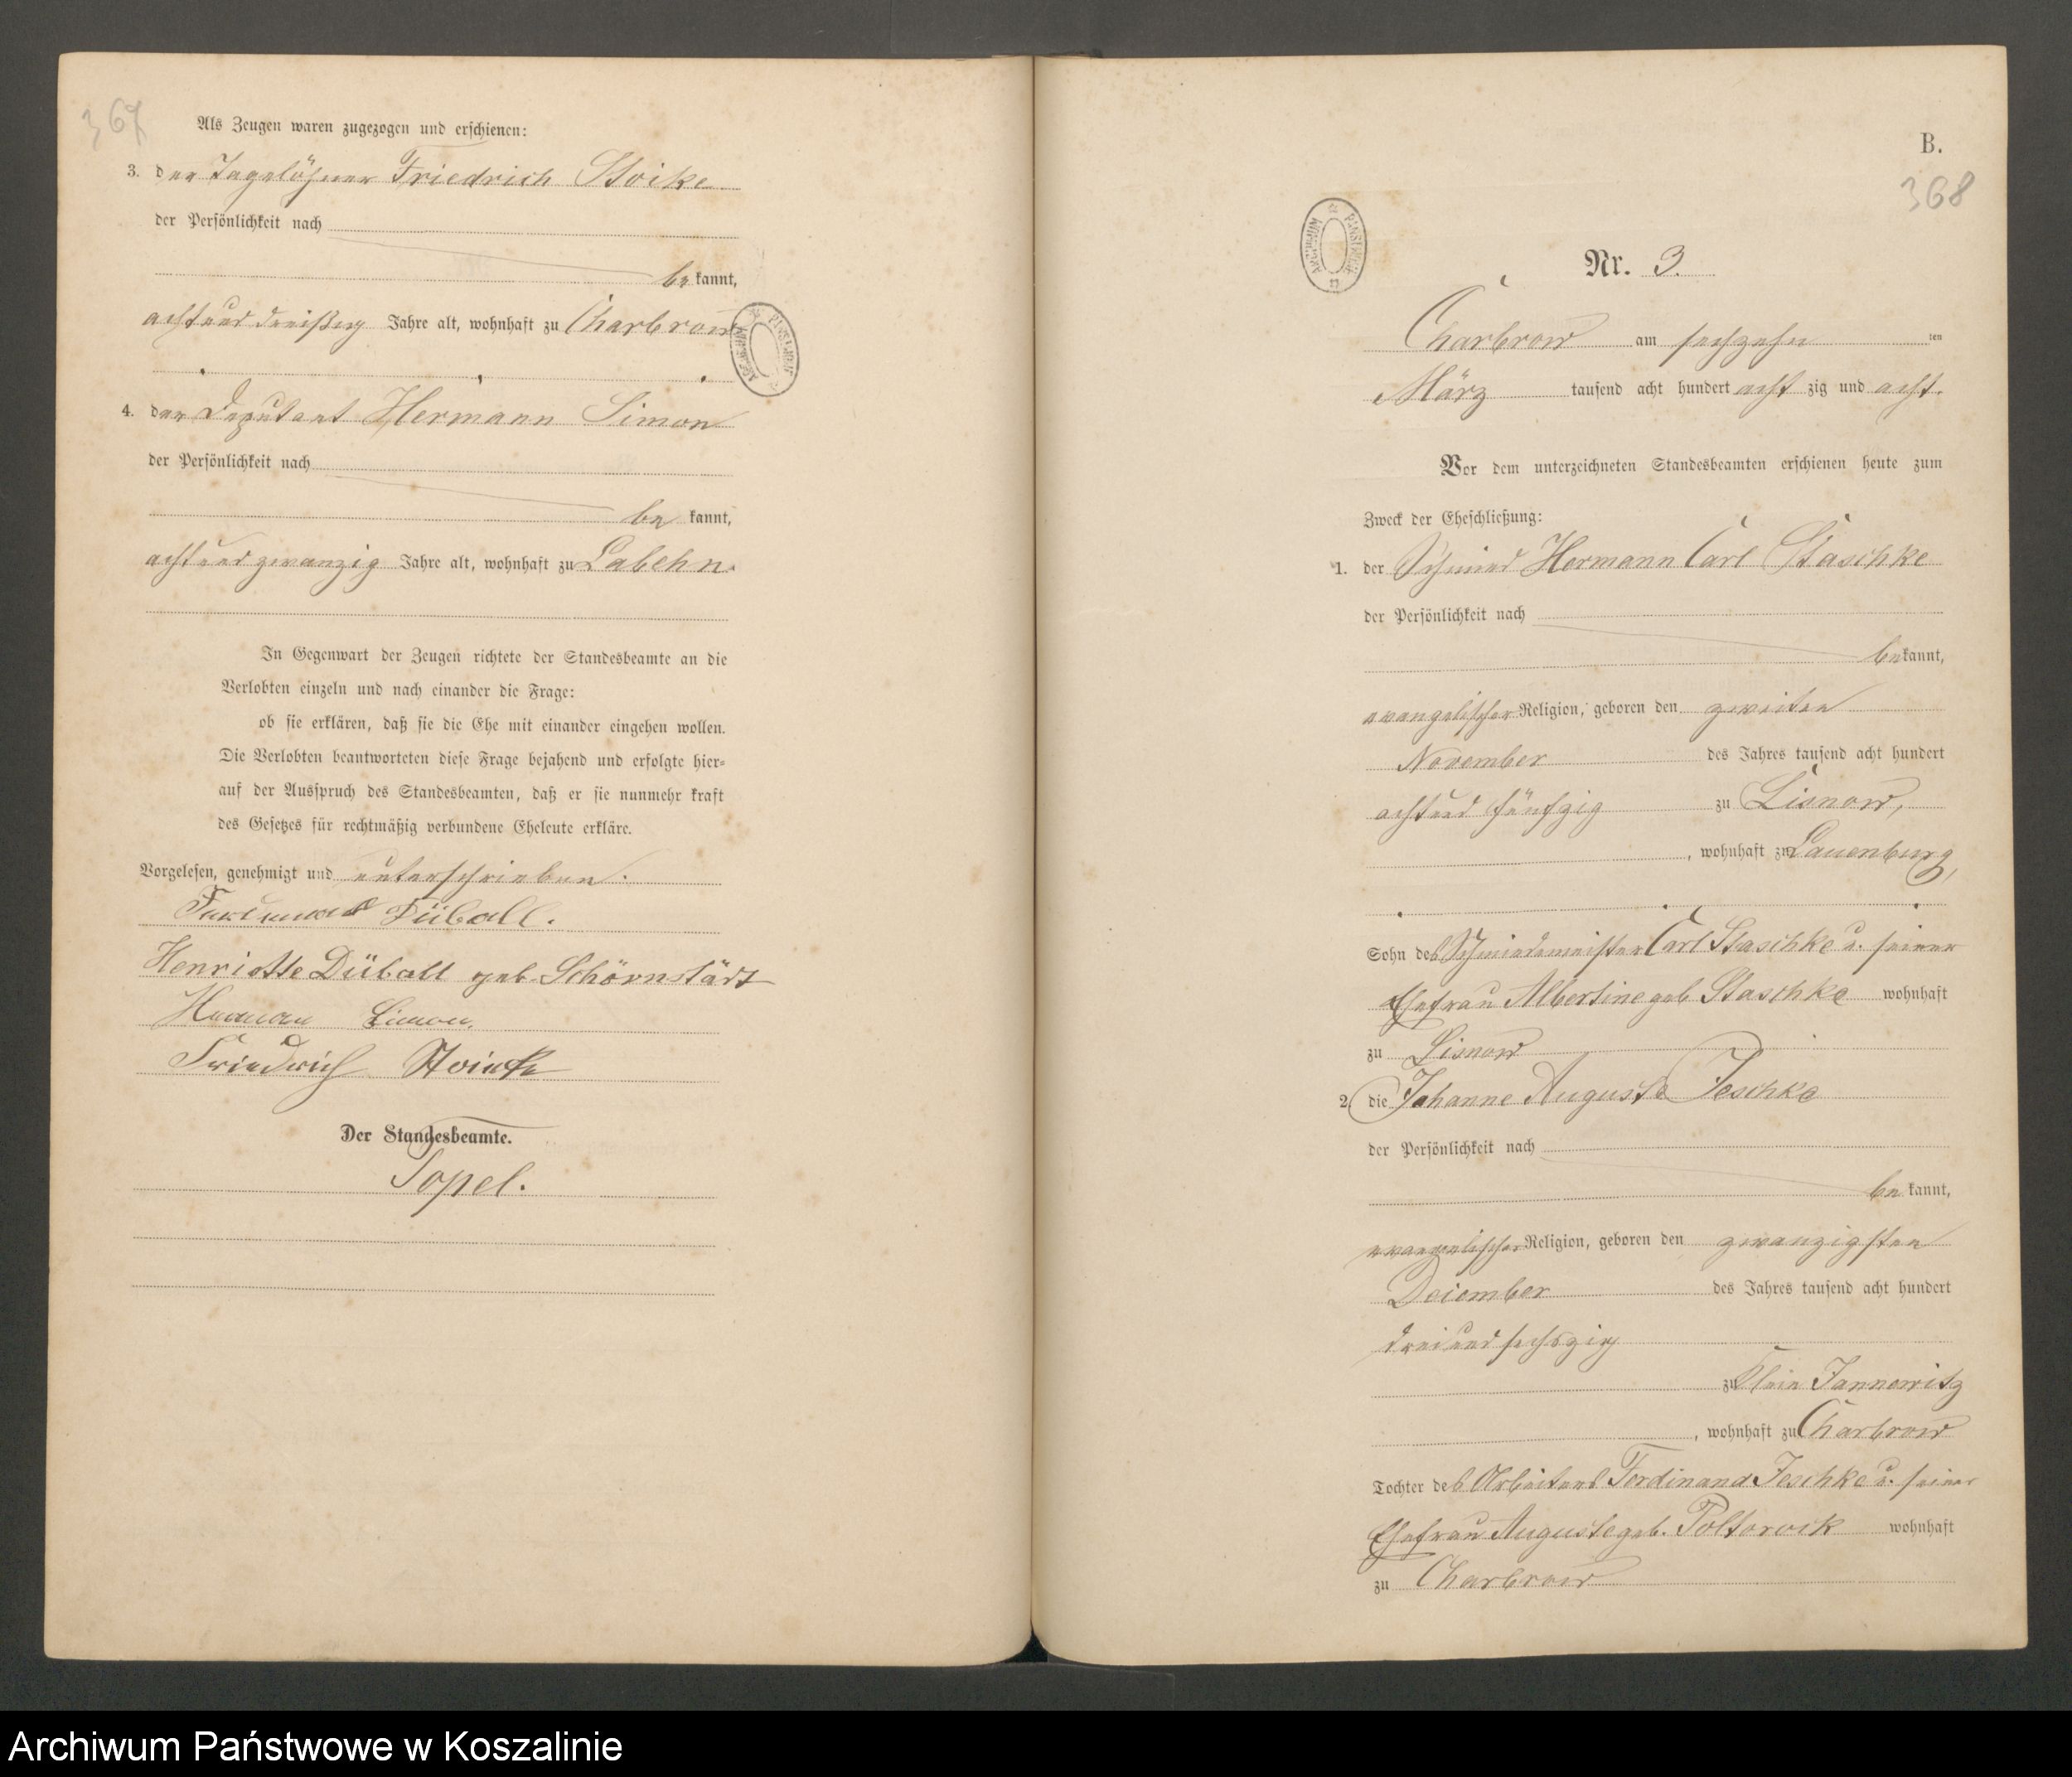 367
Als Zeugen waren zugezogen und erschienen:
3. der Tagelöhner Friedrich Stoike
der Persönlichkeit nach
bekannt,
achtunddreißig Jahre alt, wohnhaft zu Charbrow
4. der Deputant Hermann Simon
der Persönlichkeit nach
be kannt,
achtundzwanzig Jahre alt, wohnhaft zu Labehn.
In Gegenwart der Zeugen richtete der Standesbeamte an die
Verlobten einzeln und nach einander die Frage:
ob sie erklären, daß sie die Ehe mit einander eingehen wollen.
Die Verlobten beantworteten diese Frage bejahend und erfolgte hier-
auf der Ausspruch des Standesbeamten, daß er sie nunmehr kraft
des Gesetzes für rechtmäßig verbundene Eheleute erkläre.
Vorgelesen, genehmigt und unterschrieben.
Düball.
Henriette Düball geb. Schörnstädt
Herman Simon.
Friedrich Stoick
Der Standesbeamte.
Sopel.
B.
368
Nr. 3.
Charbrow am sechzehn ten
März tausend acht hundert acht zig und acht.
Vor dem unterzeichneten Standesbeamten erschienen heute zum
Zweck der Eheschließung:
1. der Schmied Hermann Carl Staschke
der Persönlichkeit nach
bekannt,
evangelischer Religion, geboren den zweiten
November des Jahres tausend acht hundert
achtundfünfzig zu Lisnow,
, wohnhaft zu Lauenburg,
Sohn des Schmiedemeister Carl Staschke u. seiner
Ehefrau Albertine geb. Staschke wohnhaft
zu Lisnow
2. die Johanne Auguste Jeschke
der Persönlichkeit nach
be kannt,
evangelischer Religion, geboren den zwanzigsten
Dezember des Jahres tausend acht hundert
dreiundsechszig
zu Klein Jannewitz
, wohnhaft zu Charbrow
Tochter des Arbeiters Ferdinand Jeschke u. seiner
Ehefrau Auguste geb. Poltorock wohnhaft
zu Charbrow
Archiwum Państwowe w Koszalinie